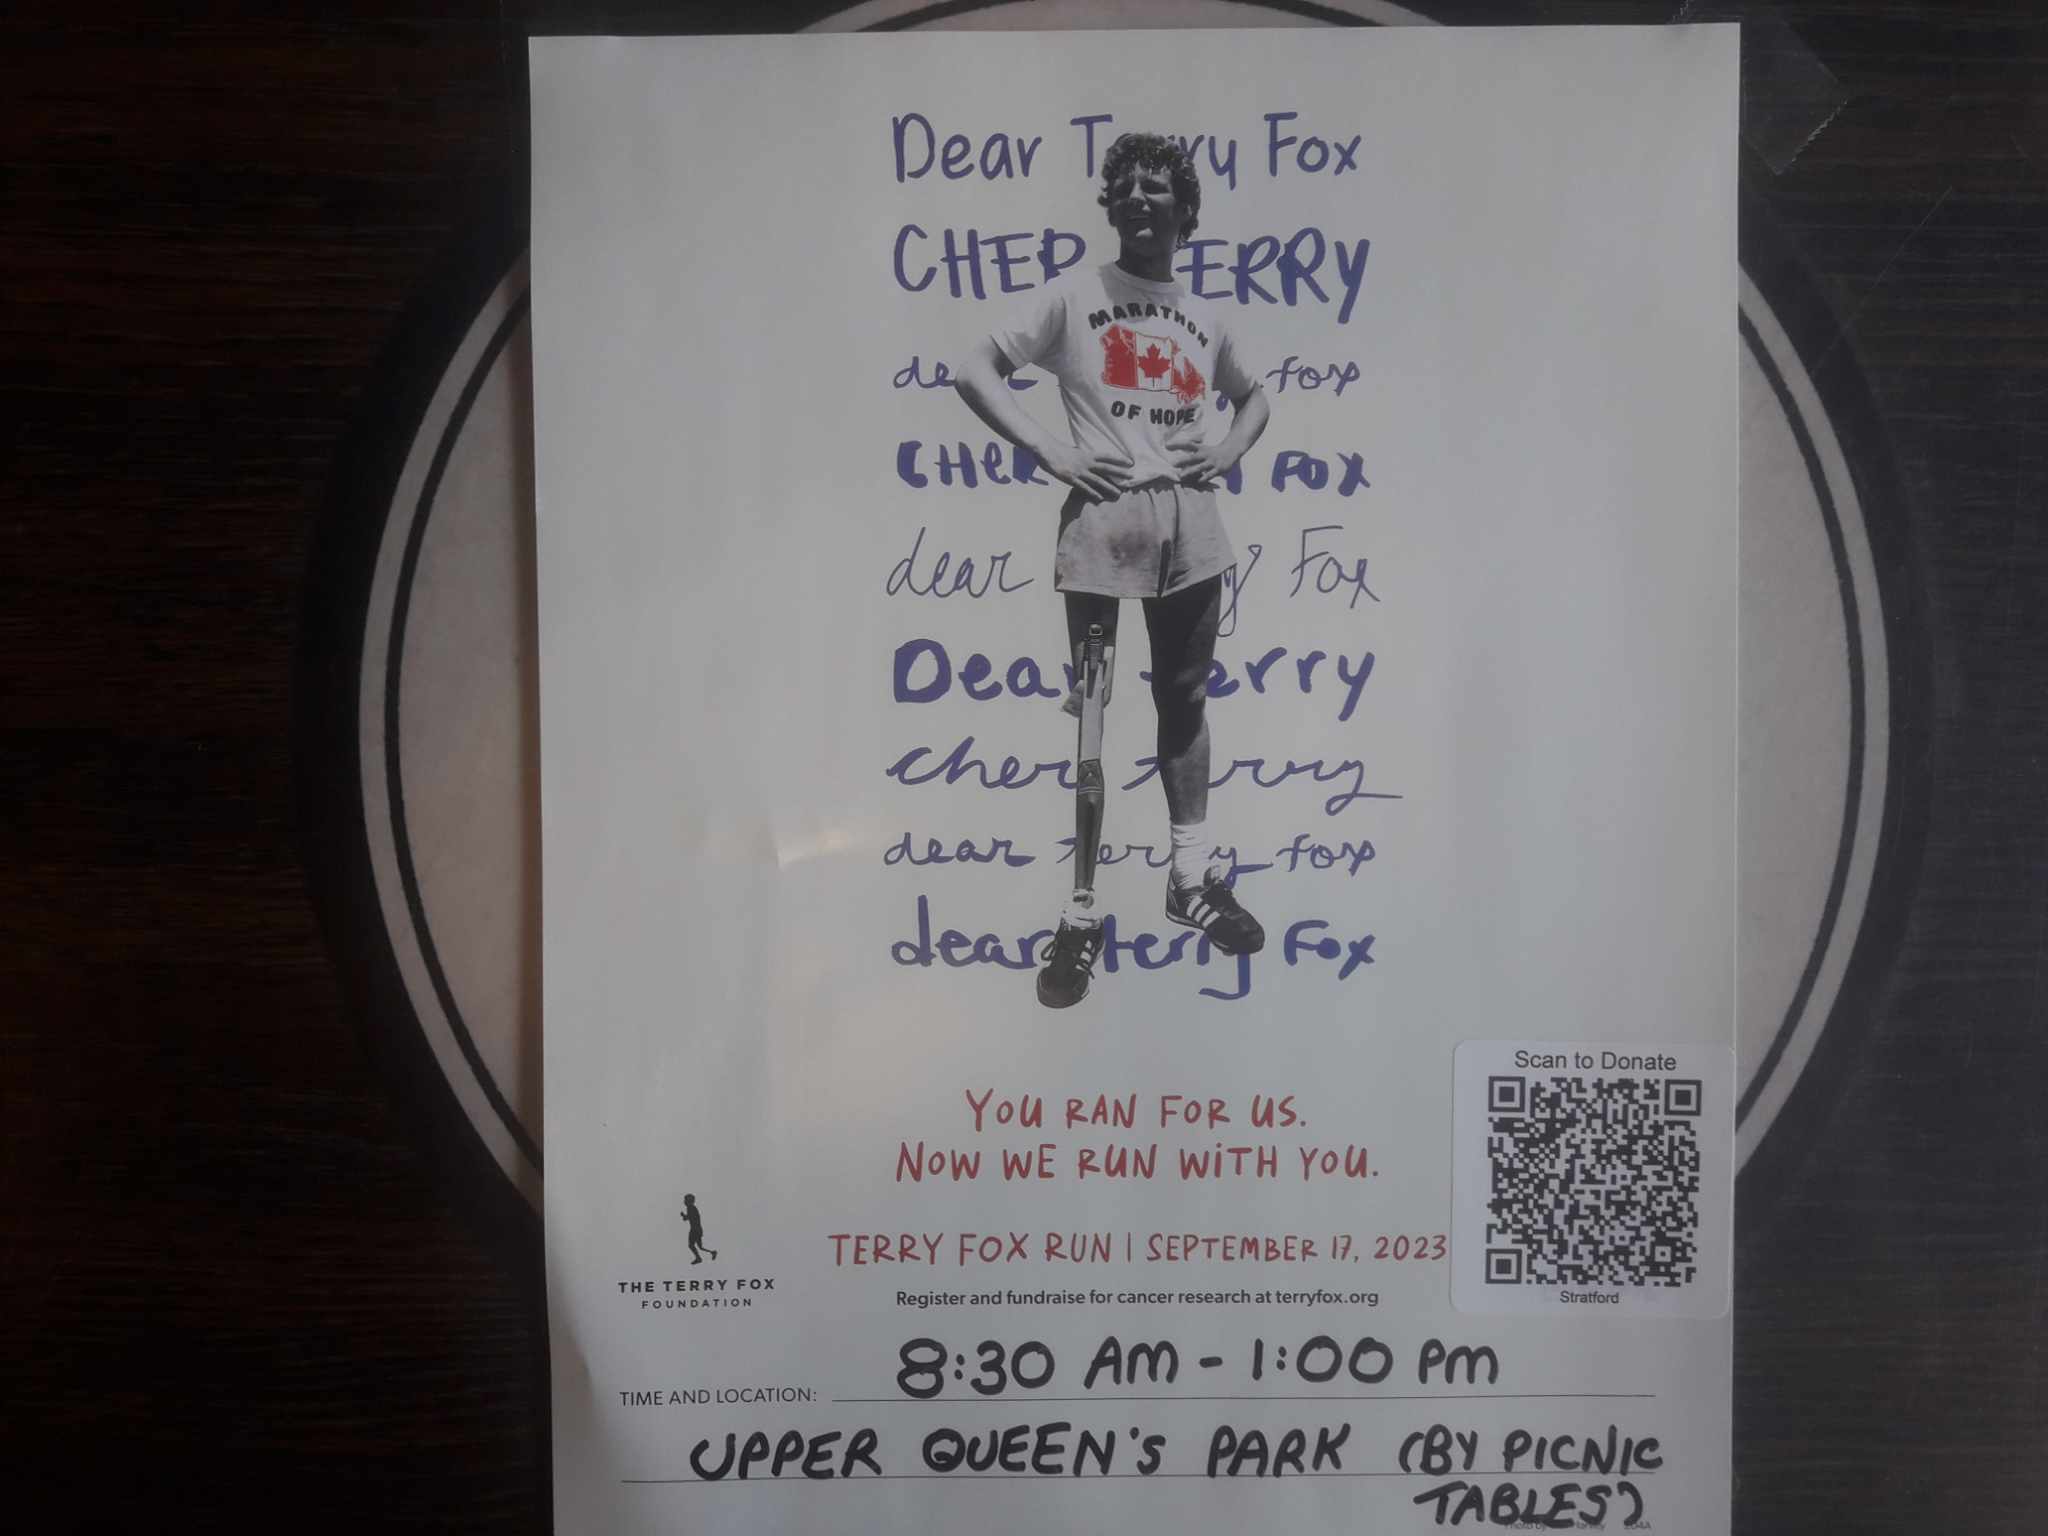 Dear Terry Fox
CHER TERRY
MARATHON
OF HOPE
fox
CHER Fox
dear Fox
Dear Terry
cher terry
dear terry fox
dear terry Fox
YOU RAN FOR US.
NOW WE RUN WITH YOU.
Scan to Donate
Stratford
THE TERRY FOX
FOUNDATION
TERRY FOX RUN | SEPTEMBER 17, 2023
Register and fundraise for cancer research at terryfox.org
8:30 AM - 1:00 PM
TIME AND LOCATION:
UPPER QUEEN'S PARK (BY PICNIC
TABLES)